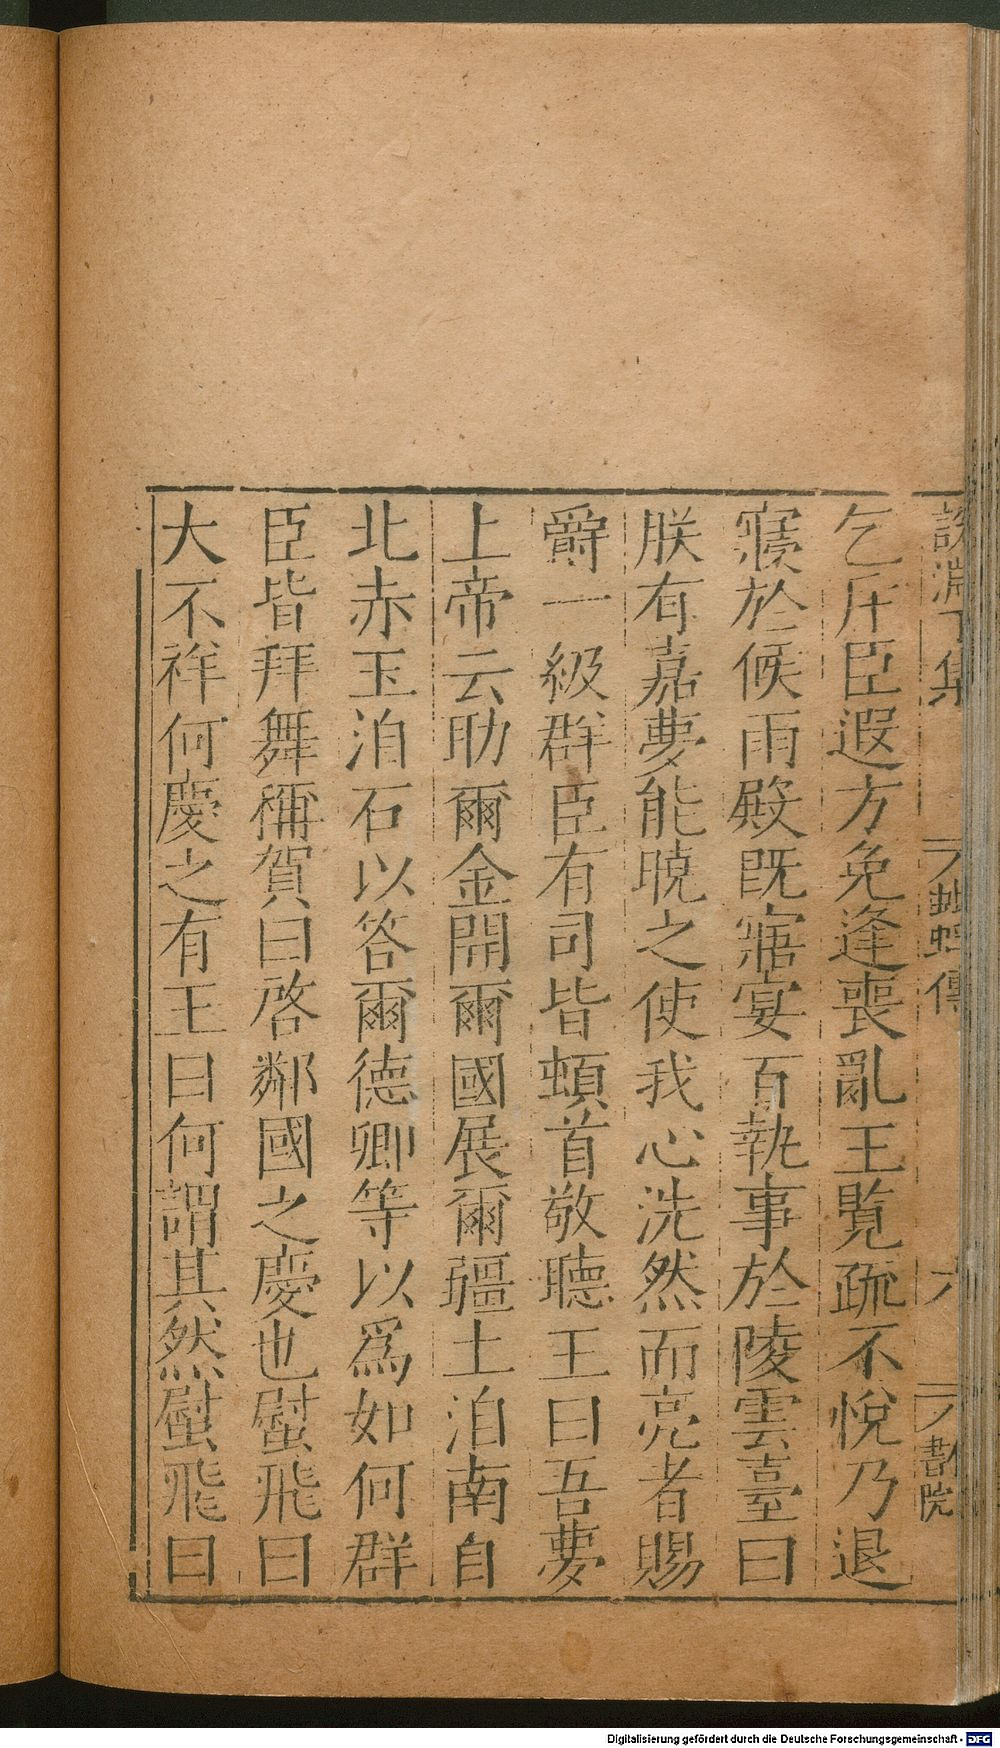 說淵丁集 蚍蜉傳 六 書院
乞斥臣遐方免逢喪亂王覧疏不悅乃退
寢於候雨殿既寤宴百執事於陵雲臺曰
朕有嘉夢能曉之使我心洗然而亮者賜
爵一級群臣有司皆頓首敬聴王曰吾夢
上帝云助爾金開爾國展爾疆土洎南自
北赤玉洎石以答爾德卿等以爲如何群
臣皆拜舞稱賀曰啓鄰國之慶也螱飛曰
大不祥何慶之有王曰何謂其然螱飛曰
Digitalisierung gefördert durch die Deutsche Forschungsgemeinschaft - DFG